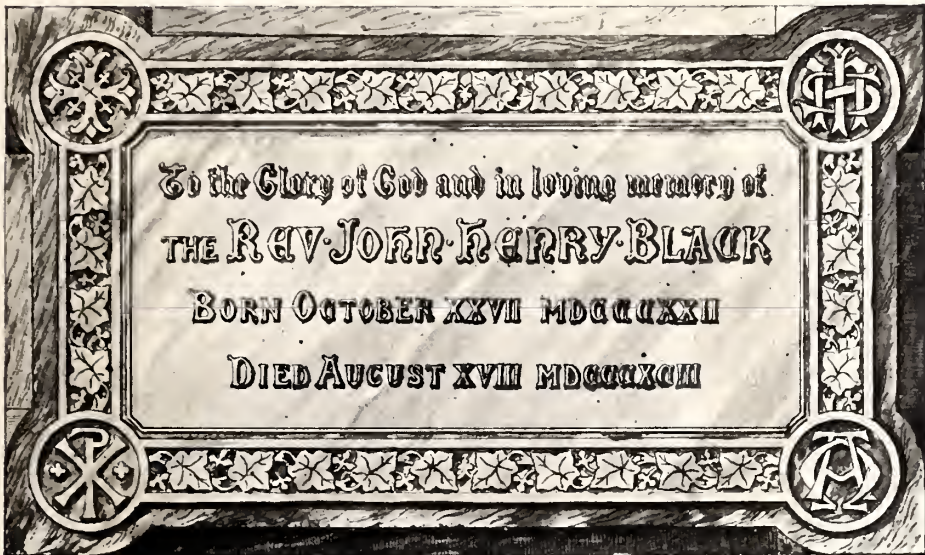 To the Glory of God and in loving memory of
THE REV·JOHN·HENRY·BLACK
BORN OCTOBER XXVII MDCCCXXII
DIED AUGUST XVIII MDCCCXCIII